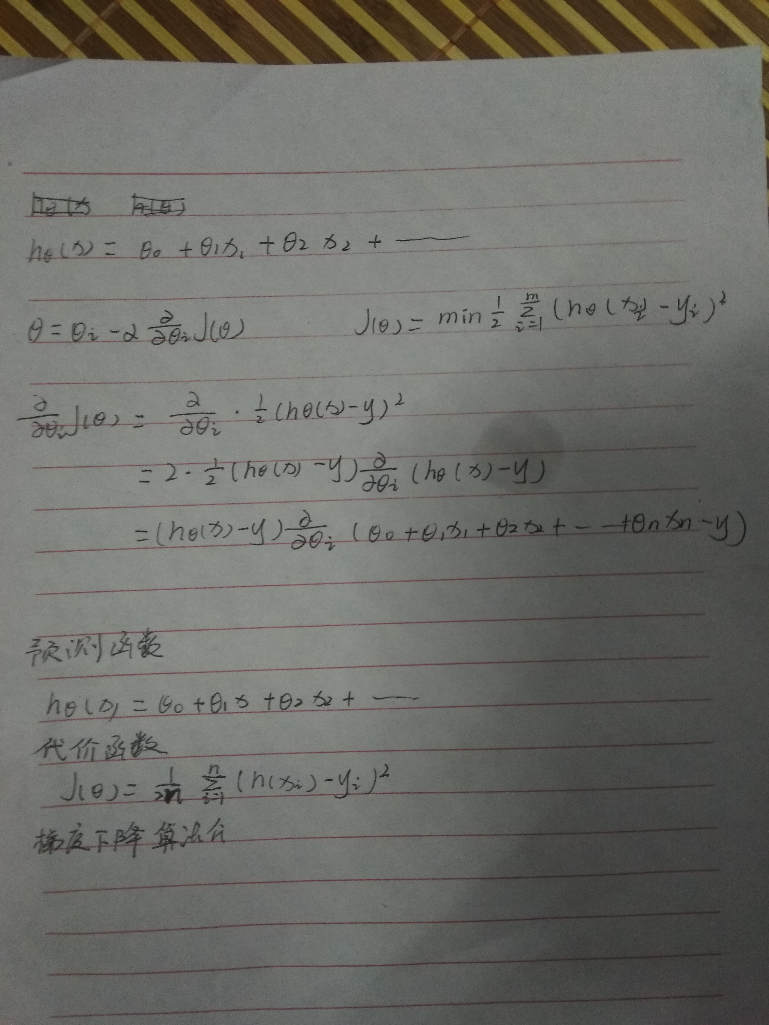 hθ(x) = θ0 + θ1x1 + θ2 x2 + ——
θ = θi - α ∂/∂θi J(θ) J(θ) = min 1/2 Σ_{i=1}^{m} (hθ(xi) - yi)²
∂/∂θi J(θ) = ∂/∂θi · 1/2 (hθ(x) - y)²
= 2 · 1/2 (hθ(x) - y) ∂/∂θi (hθ(x) - y)
= (hθ(x) - y) ∂/∂θi (θ0 + θ1x1 + θ2x2 + - - + θnxn - y)
预测函数
hθ(x) = θ0 + θ1x + θ2x2 + ——
代价函数
J(θ) = 1/2n Σ_{i=1}^{n} (h(xi) - yi)²
梯度下降算法